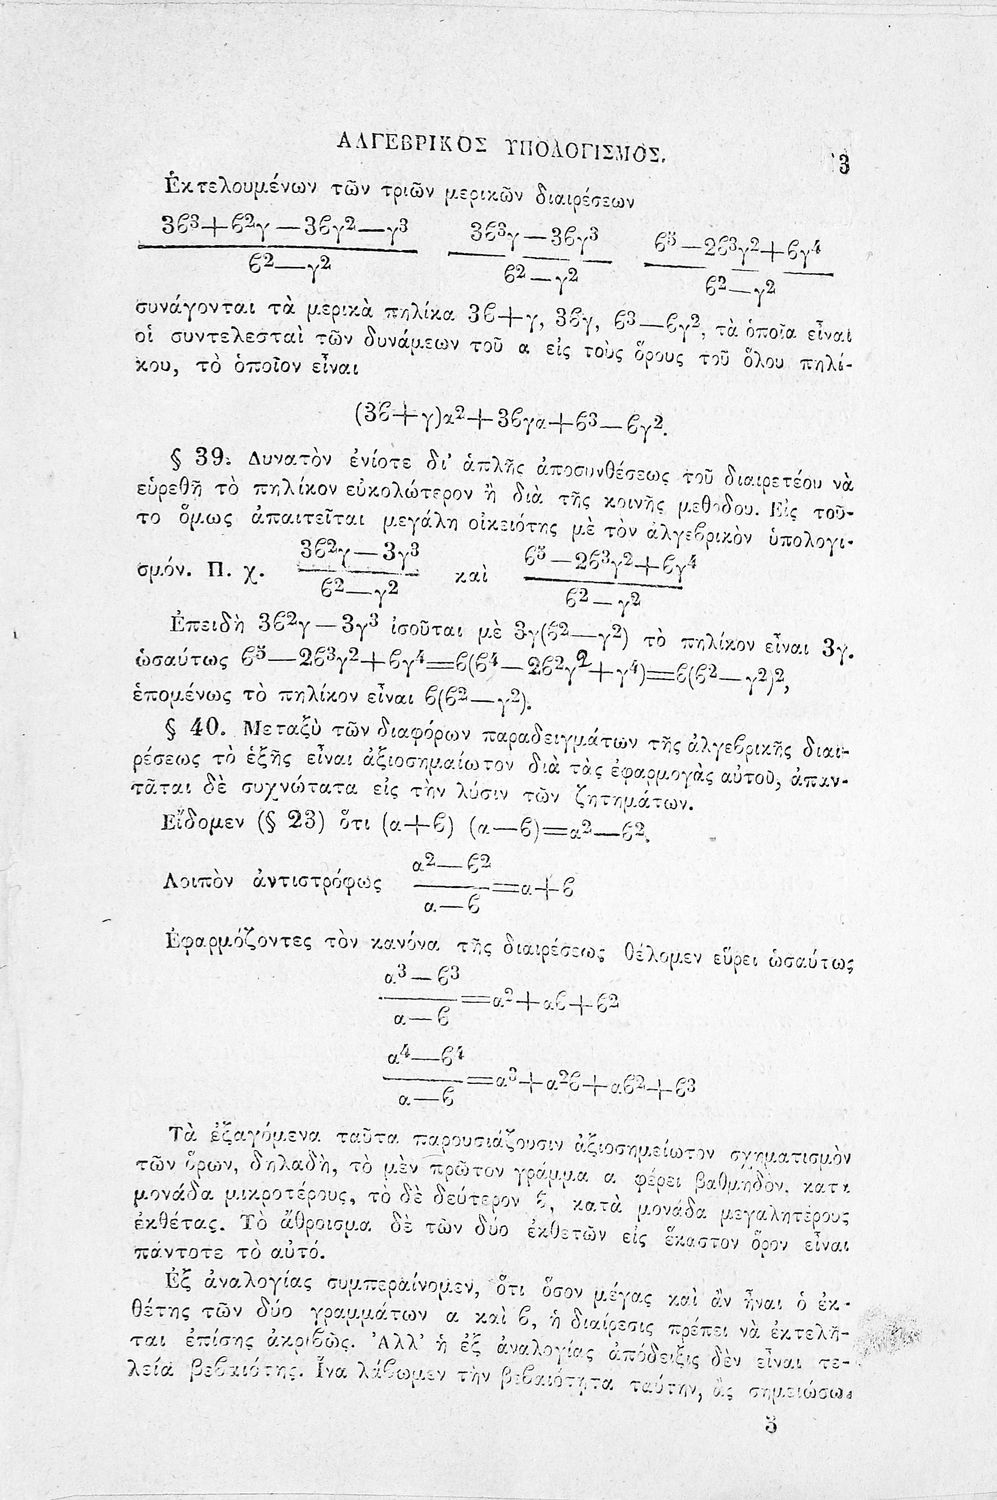 ΑΛΓΕΒΡΙΚΟΣ ΥΠΟΛΟΓΙΣΜΟΣ. 3
Ἐκτελουμένων τῶν τριῶν μερικῶν διαιρέσεων
3ϐ³+ϐ²γ—3ϐγ²—γ³ 3ϐ³γ—3ϐγ³ ϐ⁵—2ϐ³γ²+ϐγ⁴
ϐ²—γ² ϐ²—γ² ϐ²—γ²
συνάγονται τὰ μερικὰ πηλίκα 3ϐ+γ, 3ϐγ, ϐ³—ϐγ², τὰ ὁποῖα εἶναι
οἱ συντελεσταὶ τῶν δυνάμεων τοῦ α εἰς τοὺς ὅρους τοῦ ὅλου πηλί-
κου, τὸ ὁποῖον εἶναι
(3ϐ+γ)α²+3ϐγα+ϐ³—ϐγ².
§ 39. Δυνατὸν ἐνίοτε δι' ἁπλῆς ἀποσυνθέσεως τοῦ διαιρετέου νὰ
εὑρεθῇ τὸ πηλίκον εὐκολώτερον ἢ διὰ τῆς κοινῆς μεθόδου. Εἰς τοῦ-
το ὅμως ἀπαιτεῖται μεγάλη οἰκειότης μὲ τὸν ἀλγεϐρικὸν ὑπολογι-
σμόν. Π. χ. 3ϐ²γ—3γ³ καὶ ϐ⁵—2ϐ³γ²+ϐγ⁴
ϐ²—γ² ϐ²—γ²
Ἐπειδὴ 3ϐ²γ—3γ³ ἰσοῦται μὲ 3γ(ϐ²—γ²) τὸ πηλίκον εἶναι 3γ.
ὡσαύτως ϐ⁵—2ϐ³γ²+ϐγ⁴=ϐ(ϐ⁴—2ϐ²γ²+γ⁴)=ϐ(ϐ²—γ²)²,
ἑπομένως τὸ πηλίκον εἶναι ϐ(ϐ²—γ²).
§ 40. Μεταξὺ τῶν διαφόρων παραδειγμάτων τῆς ἀλγεϐρικῆς διαι-
ρέσεως τὸ ἑξῆς εἶναι ἀξιοσημαίωτον διὰ τὰς ἐφαρμογὰς αὐτοῦ, ἀπαν-
τᾶται δὲ συχνώτατα εἰς τὴν λύσιν τῶν ζητημάτων.
Εἴδομεν (§ 23) ὅτι (α+ϐ) (α—ϐ)=α²—ϐ².
α²—ϐ²
Λοιπὸν ἀντιστρόφως =α+ϐ
α—ϐ
Ἐφαρμόζοντες τὸν κανόνα τῆς διαιρέσεως θέλομεν εὕρει ὡσαύτως
α³—ϐ³
=α²+αϐ+ϐ²
α—ϐ
α⁴—ϐ⁴
=α³+α²ϐ+αϐ²+ϐ³
α—ϐ
Τὰ ἐξαγόμενα ταῦτα παρουσιάζουσιν ἀξιοσημείωτον σχηματισμὸν
τῶν ὅρων, δηλαδὴ, τὸ μὲν πρῶτον γράμμα α φέρει βαθμηδὸν, κατὰ
μονάδα μικροτέρους, τὸ δὲ δεύτερον ϐ, κατὰ μονάδα μεγαλητέρους
ἐκθέτας. Τὸ ἄθροισμα δὲ τῶν δύο ἐκθετῶν εἰς ἕκαστον ὅρον εἶναι
πάντοτε τὸ αὐτό.
Ἐξ ἀναλογίας συμπεραίνομεν, ὅτι ὅσον μέγας καὶ ἂν ἦναι ὁ ἐκ-
θέτης τῶν δύο γραμμάτων α καὶ ϐ, ἡ διαίρεσις πρέπει νὰ ἐκτελῆ-
ται ἐπίσης ἀκριϐῶς. Ἀλλ' ἡ ἐξ ἀναλογίας ἀπόδειξις δὲν εἶναι τε-
λεία βεϐαιότης. Ἵνα λάϐωμεν τὴν βεϐαιότητα ταύτην, ἂς σημειώσω-
5